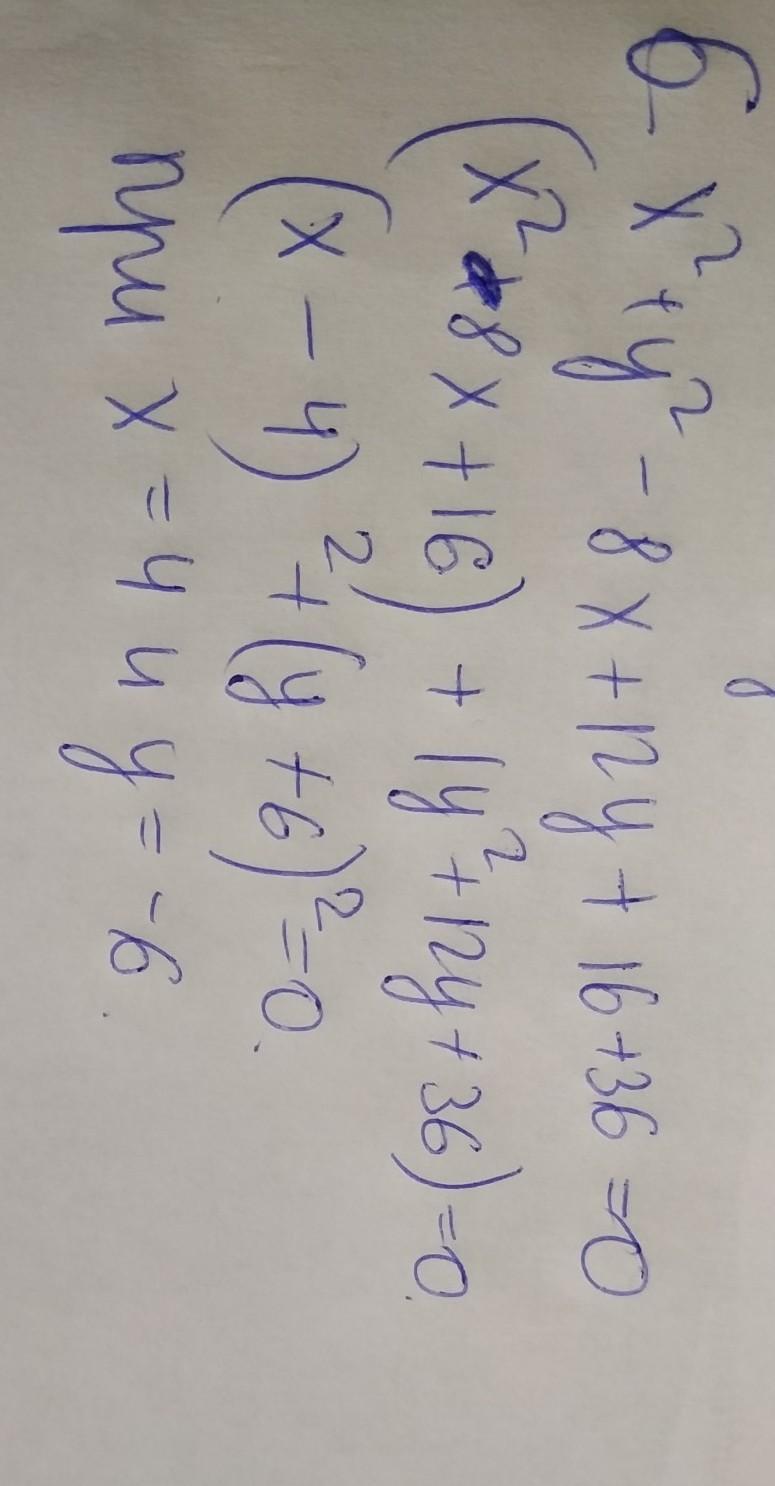 6- x² + y² - 8x + 12y + 16 + 36 = 0
(x² - 8x + 16) + (y² + 12y + 36) = 0.
(x - 4)² + (y + 6)² = 0.
при x = 4 и y = -6.